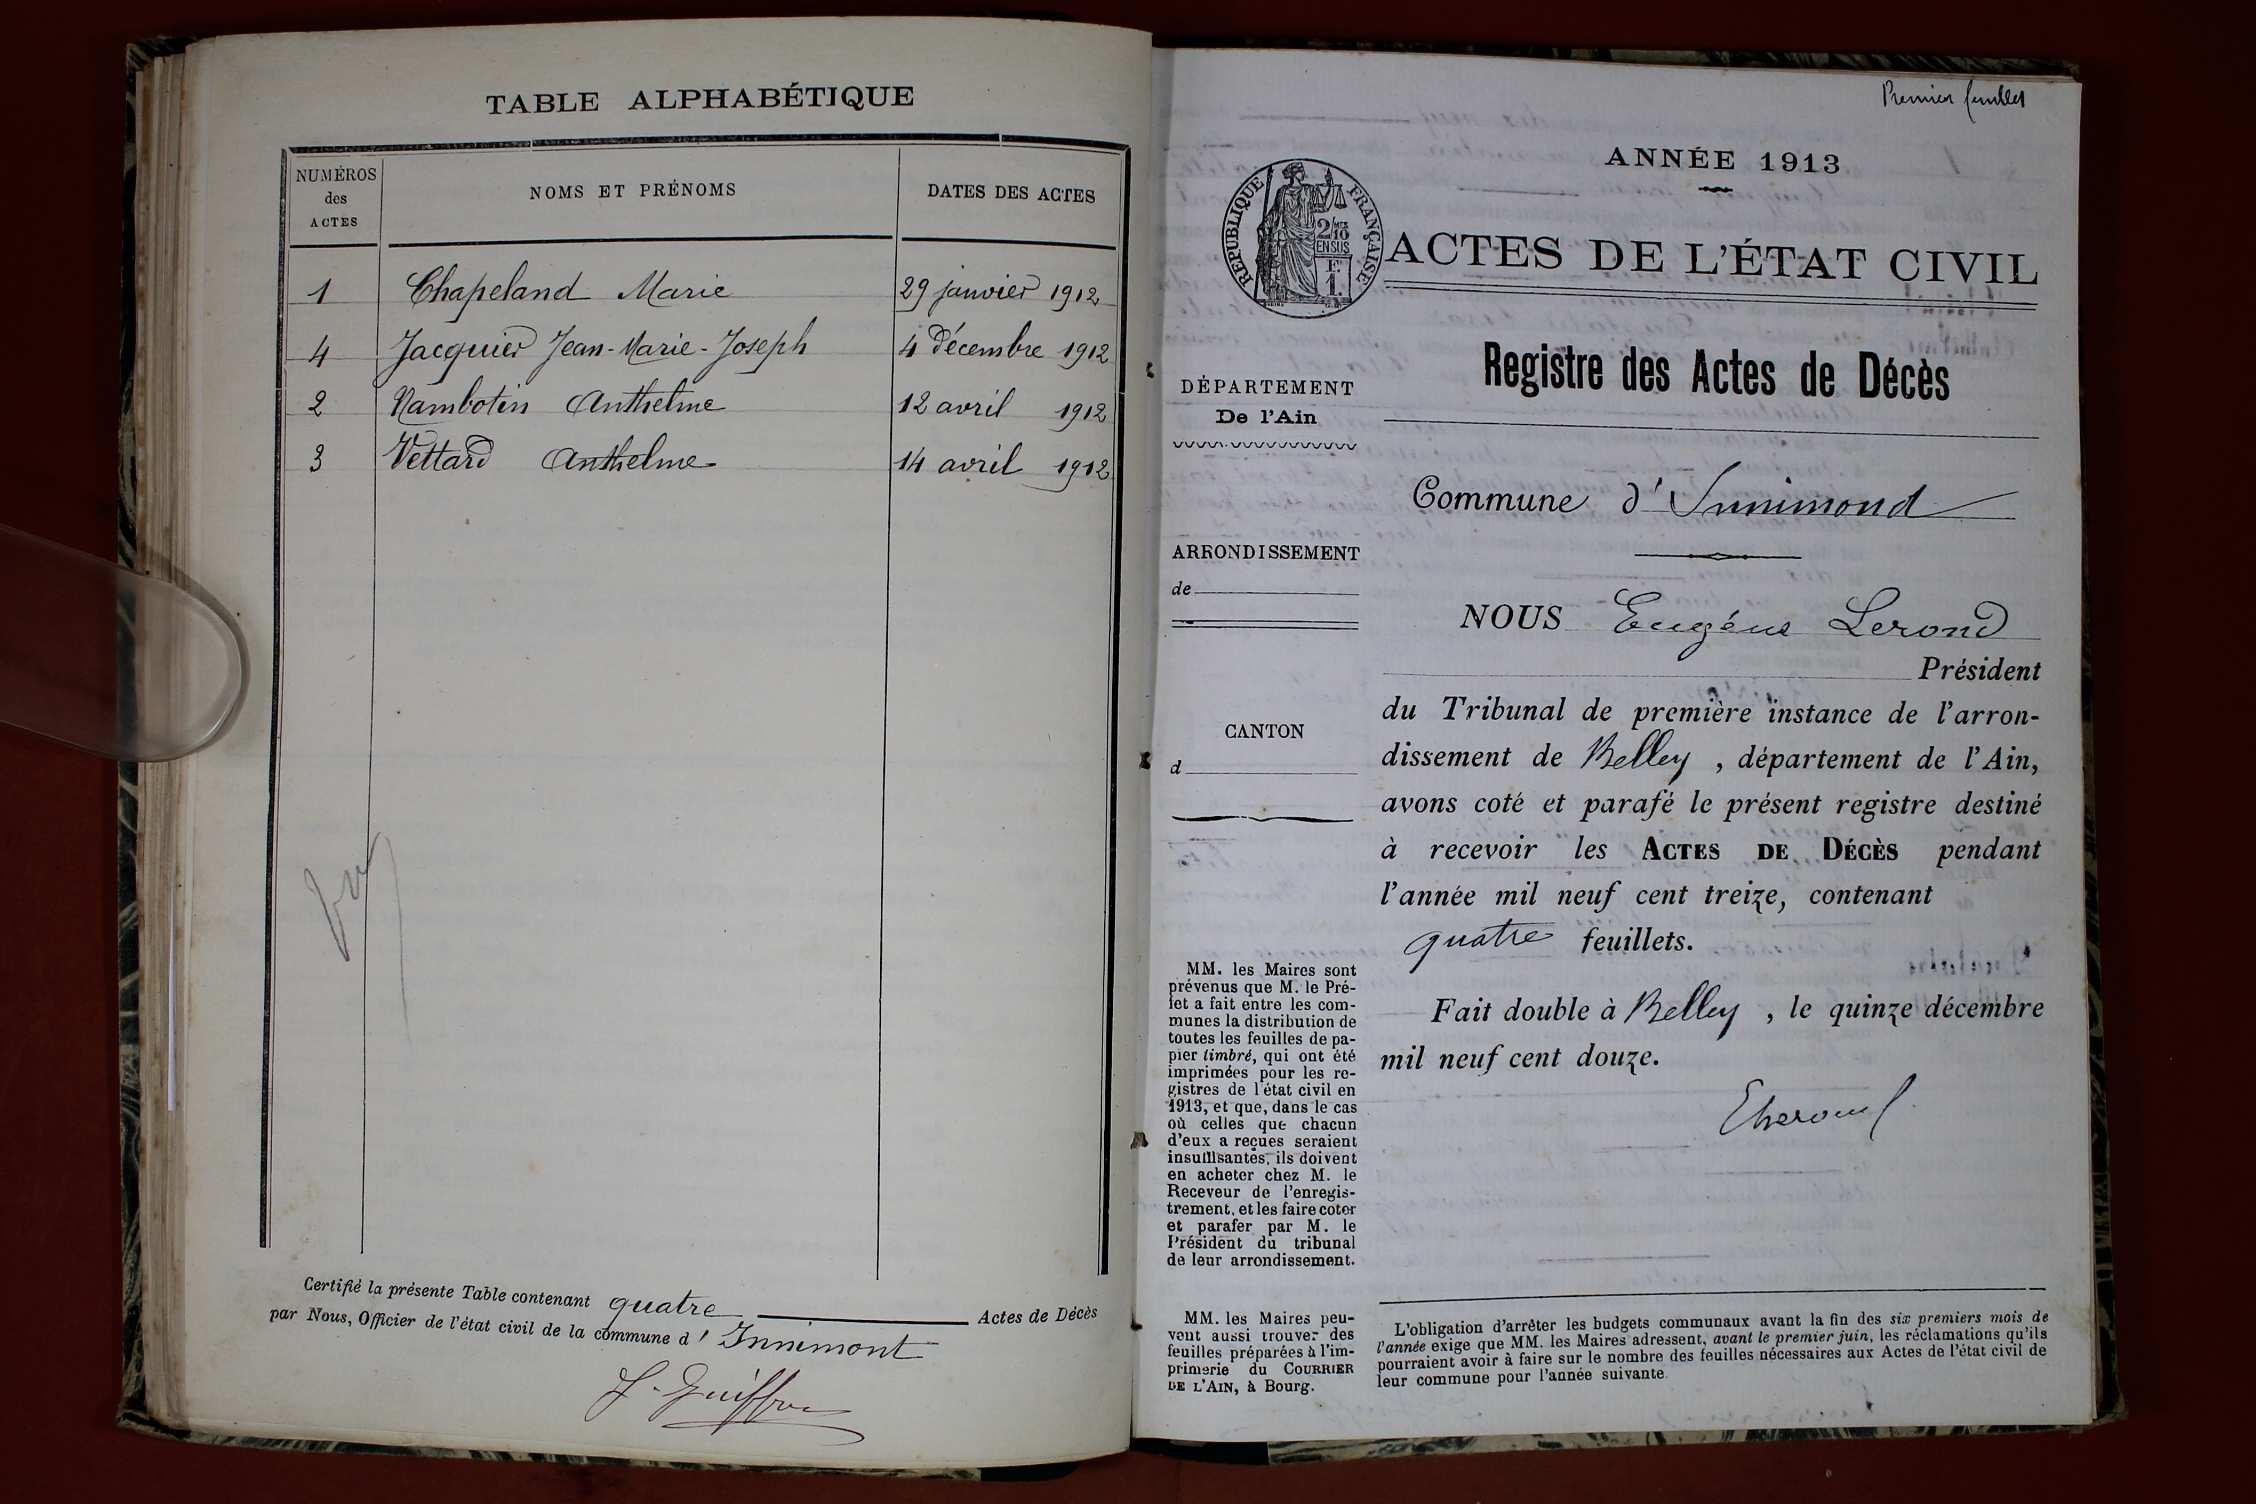 TABLE ALPHABÉTIQUE
NUMÉROS
des
ACTES
NOMS ET PRÉNOMS
DATES DES ACTES
1 Chapeland Marie 29 janvier 1912
4 Jacquier Jean-Marie-Joseph 4 Décembre 1912
2 Nambotin Anthelme 12 avril 1912
3 Vettard Anthelme 14 avril 1912
Certifié la présente Table contenant quatre Actes de Décès
par Nous, Officier de l'état civil de la commune d' Innimont
Premier feuillet
ANNÉE 1913
RÉPUBLIQUE FRANÇAISE
2/10
EN SUS
F.
1.
ACTES DE L'ÉTAT CIVIL
Registre des Actes de Décès
DÉPARTEMENT
De l'Ain
Commune d'Innimond
ARRONDISSEMENT
de
NOUS Eugène Lerond
Président
du Tribunal de première instance de l'arron-
dissement de Belley, département de l'Ain,
avons coté et parafé le présent registre destiné
à recevoir les ACTES DE DÉCÈS pendant
l'année mil neuf cent treize, contenant
quatre feuillets.
Fait double à Belley, le quinze décembre
mil neuf cent douze.
CANTON
d
MM. les Maires sont
prévenus que M. le Pré-
fet a fait entre les com-
munes la distribution de
toutes les feuilles de pa-
pier timbré, qui ont été
imprimées pour les re-
gistres de l'état civil en
1913, et que, dans le cas
où celles que chacun
d'eux a reçues seraient
insuffisantes, ils doivent
en acheter chez M. le
Receveur de l'enregis-
trement, et les faire coter
et parafer par M. le
Président du tribunal
de leur arrondissement.
MM. les Maires peu-
vent aussi trouver des
feuilles préparées à l'im-
primerie du COURRIER
DE L'AIN, à Bourg.
L'obligation d'arrêter les budgets communaux avant la fin des six premiers mois de
l'année exige que MM. les Maires adressent, avant le premier juin, les réclamations qu'ils
pourraient avoir à faire sur le nombre des feuilles nécessaires aux Actes de l'état civil de
leur commune pour l'année suivante.